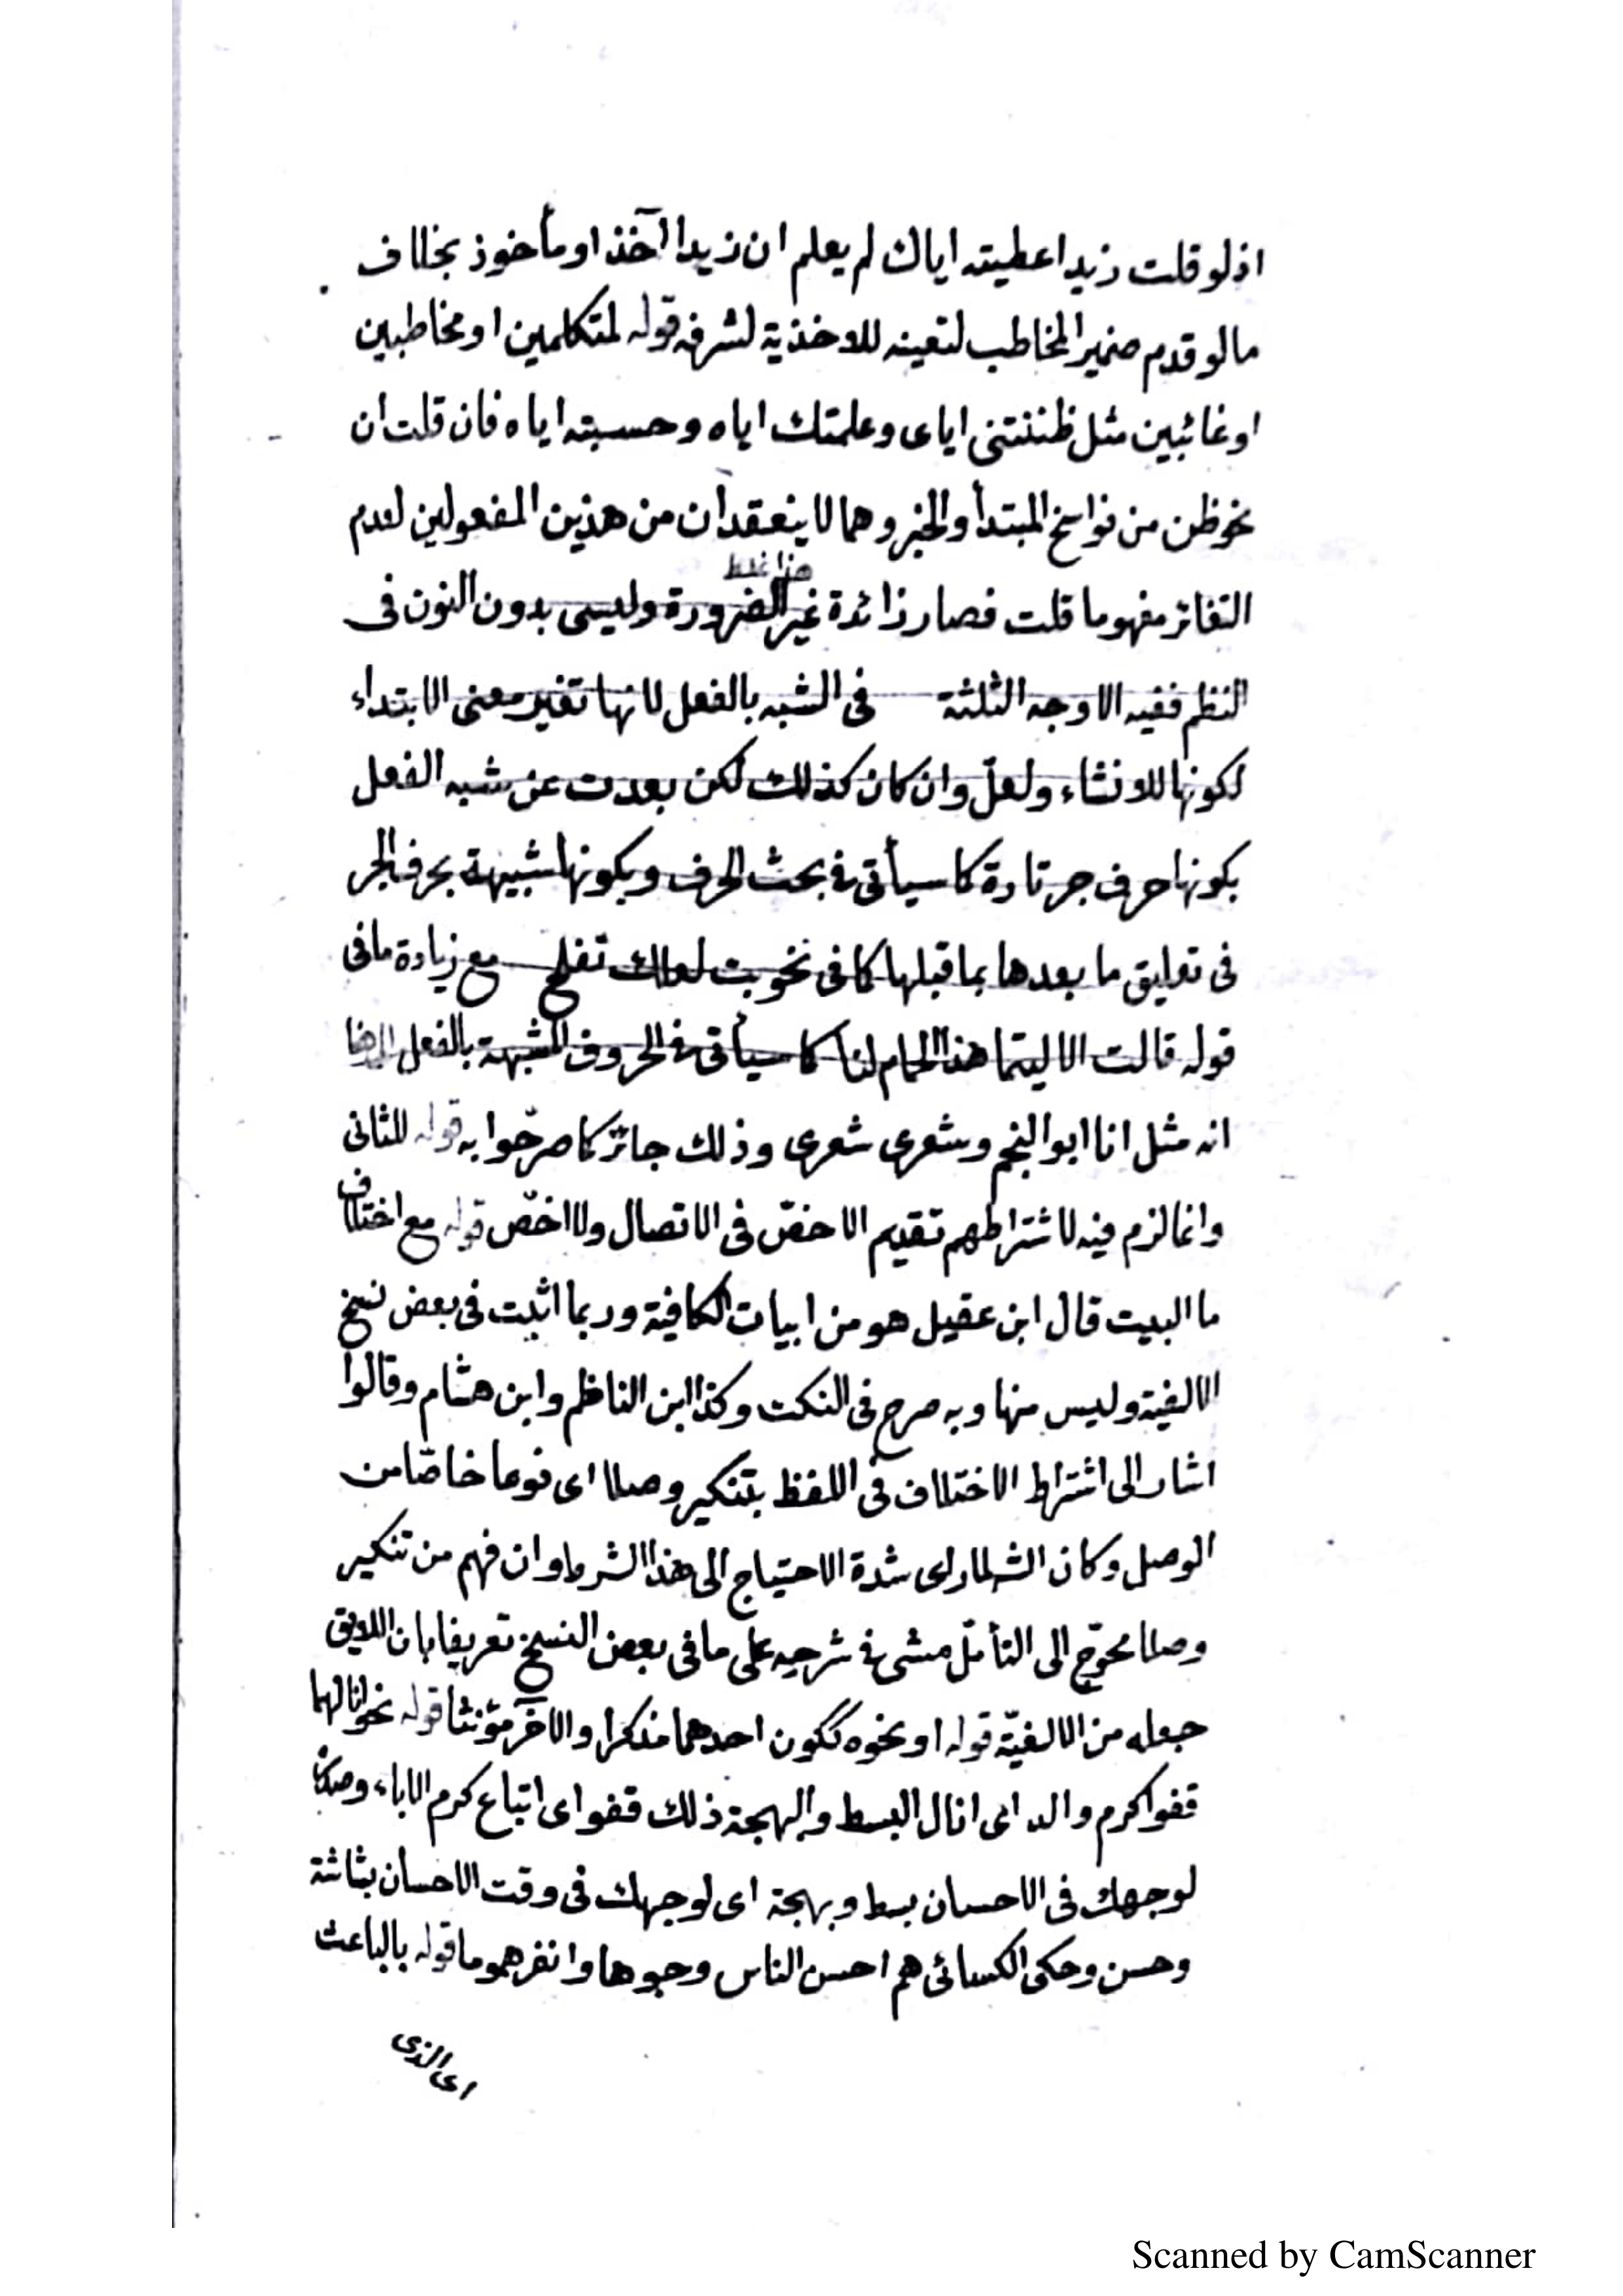 اذ لو قلت زيد اعطيته اياك لم يعلم ان زيدا آخذ او مأخوذ بخلاف
ما لو قدم ضمير المخاطب لتعينه للاخذية لشرفه قوله لمتكلمين او مخاطبين
او غائبين مثل ظننتنى اياى وعلمتك اياه وحسبته اياه فان قلت ان
نحو ظن من نواسخ المبتدأ والخبر وهما لا ينعقدان من هذين المفعولين لعدم
هذا غلط
التغائر مفهوما قلت فصار زائدة غير الضرورة وليسى بدون النون فى
النظم ففيه الاوجه الثلثة فى الشبه بالفعل لانها تغير معنى الابتداء
لكونها للانشاء ولعلّ وان كان كذلك لكن بعدت عن شبه الفعل
بكونها حرف جر تارة كما سيأتى فى بحث الحرف وبكونها شبيهة بحرف الجر
فى تعليق ما بعدها بما قبلها كما فى نحو تبت لعلك تفلح مع زيادة ما فى
قوله قالت الا ليتما هذا الحمام لنا كما سيأتى فى الحروف المشبهة بالفعل
انه مثل انا ابو النجم وشعرى شعرى وذلك جائز كما صرّحوا به قوله للثانى
وانما لزم فيه لاشتراطهم تقديم الاخصّ فى الاتصال ولا اخصّ قوله مع اختلاف
ما البيت قال ابن عقيل هو من ابيات الكافية وربما اثبت فى بعض نسخ
الالفية وليس منها وبه صرح فى النكت وكذا ابن الناظم وابن هشام وقالوا
اشار الى اشتراط الاختلاف فى اللفظ بتنكير وصلا اى نوعا خاصّا من
الوصل وكان الشـ لما راى شدة الاحتياج الى هذا الشرط وان فهم من تنكير
وصلا محوّج الى التأمّل مشى فى شرحيه على ما فى بعض النسخ تعريضا بان اللايق
جعله من الالفيّة قوله او نحوه ككون احدهما مذكرا والآخر مؤنثا قوله نحو انالهما
قفو اكرم والد اى انال البسط والبهجة ذلك قفو اى اتباع كرم الاباء
لوجهك فى الاحسان بسط وبهجة اى لوجهك فى وقت الاحسان بشاشة
وحسن وحكى الكسائى هم احسن الناس وجوها وانضرهموما قوله بالباعث
اى الذى
Scanned by CamScanner